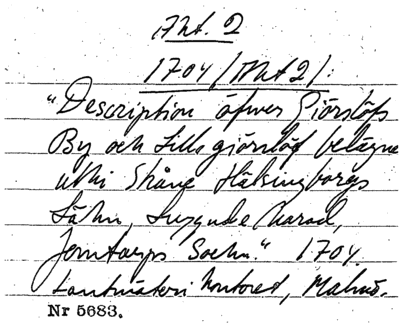 Akt. 2
1704 (Akt 2):
"Description öfwer Giörslöfs
By och Lille giörslöf belägne
uthi Skåne Hälsingborgs
Lähn, Luggude härad,
Jemtarps Sochn." 1704.
Lantmäteri kontoret, Malmö.
Nr 5683.